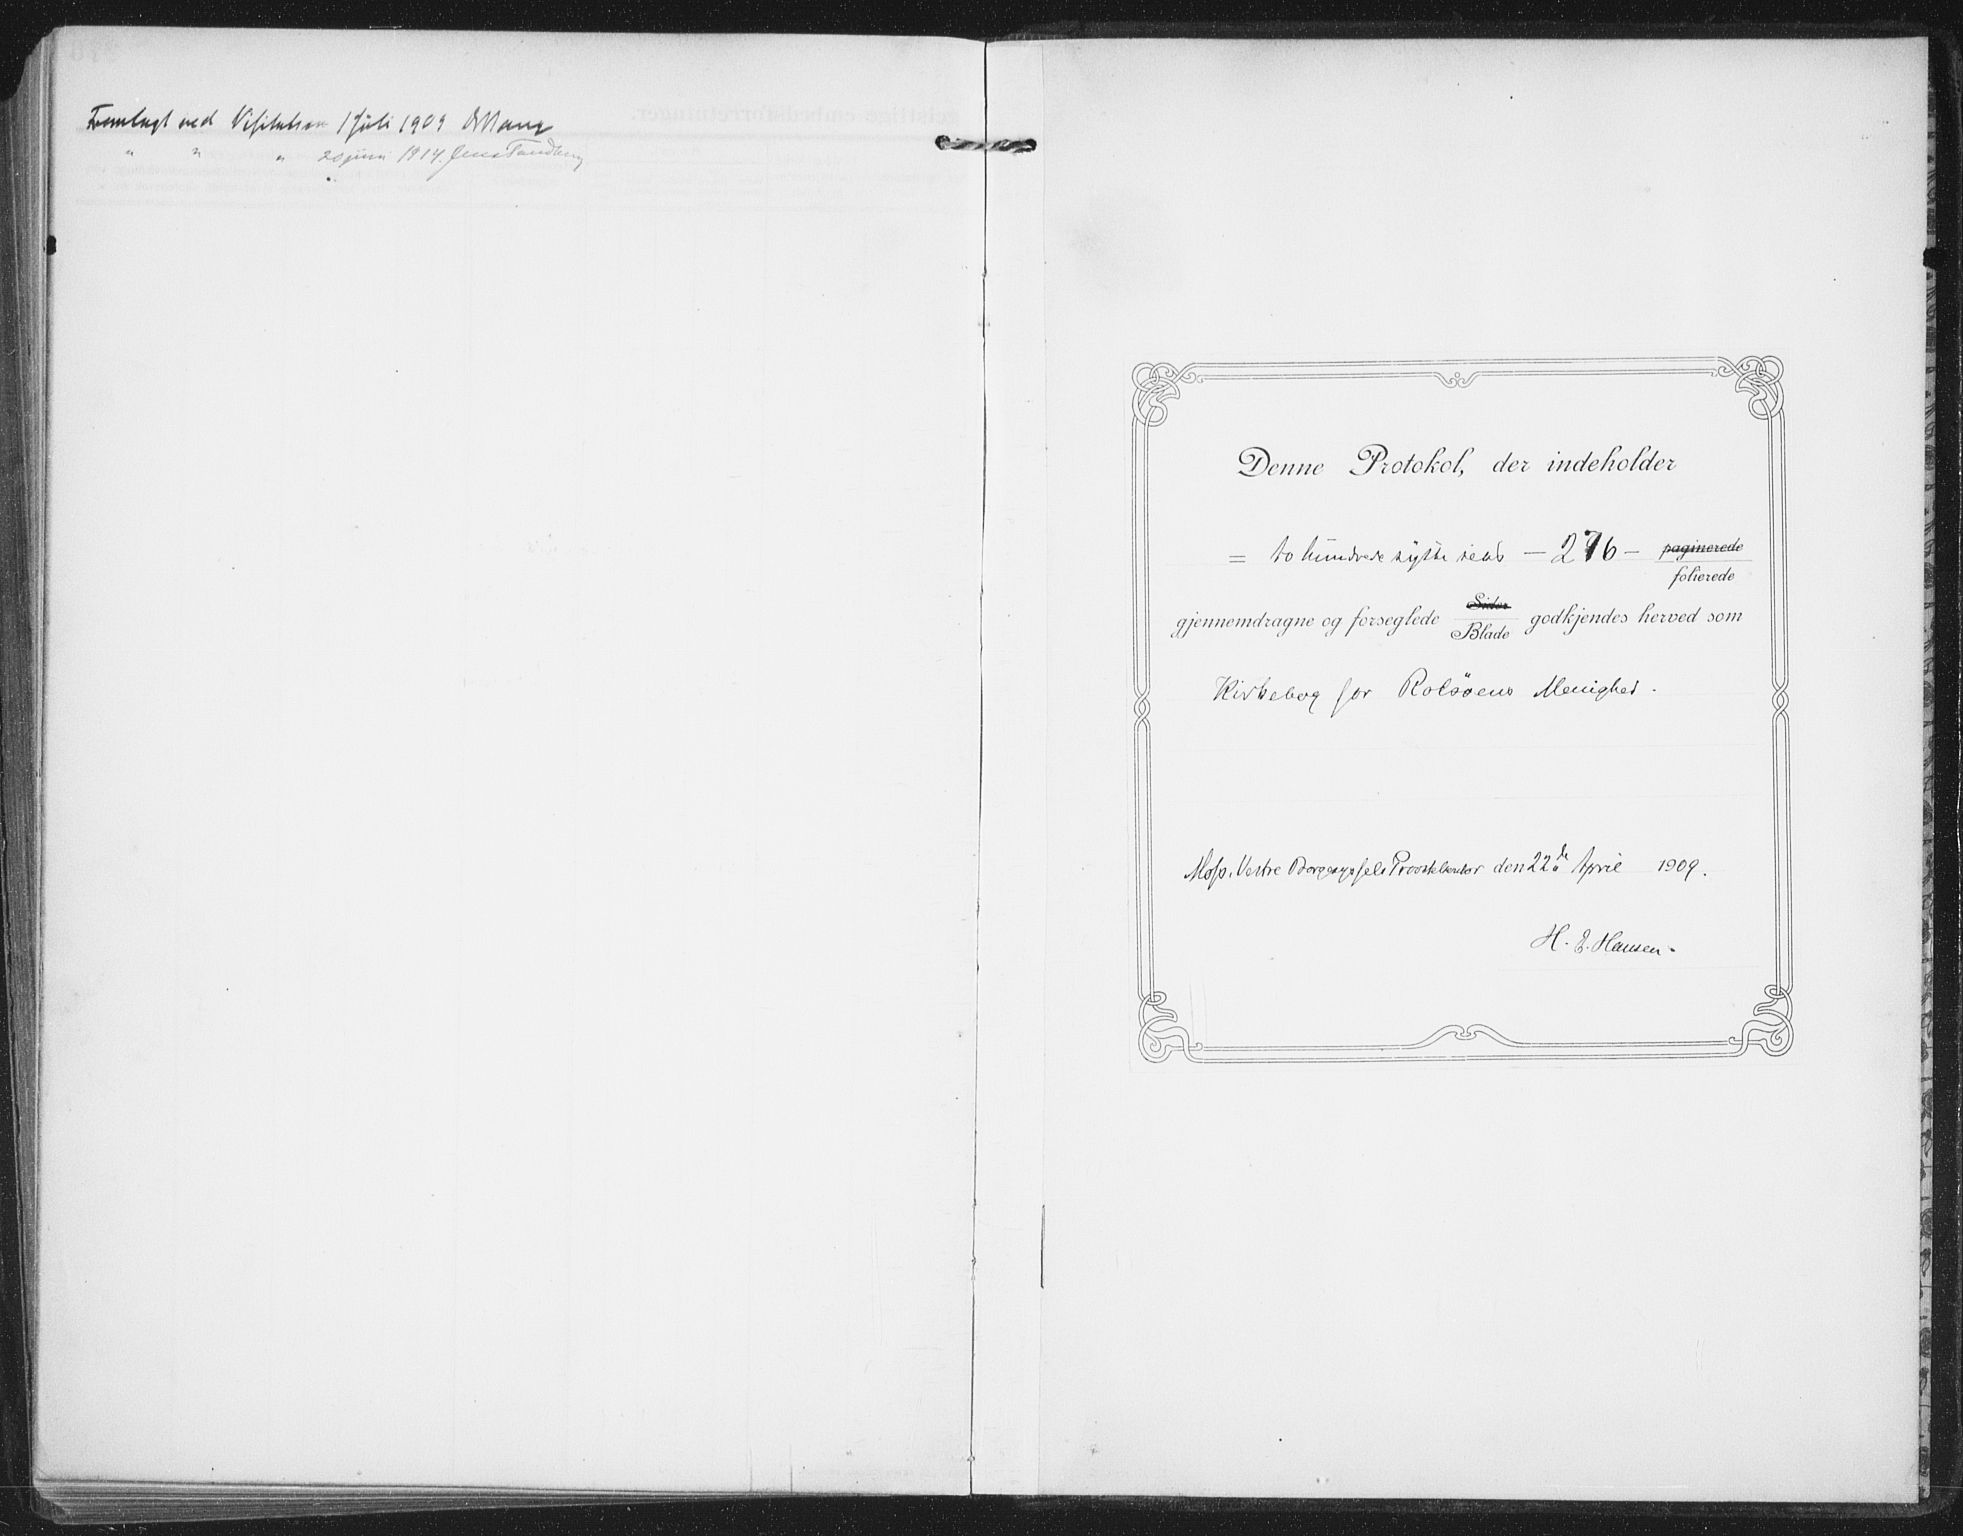 Fremlagt ved Visitatsen 1 Juli 1909
" " " 20 juni 1914. Jens Tandberg
geistlige embedsforretninger.
Denne Protokol, der indeholder
= to hundrede sytti seks — 276 — paginerede
folierede
gjennemdragne og forseglede Sider godkjendes herved som
Blade
Kirkebog for Rolsøens Menighed.
Moss, Vestre Borgesyssels Provstekontor den 22de April 1909.
H. E. Hansen.